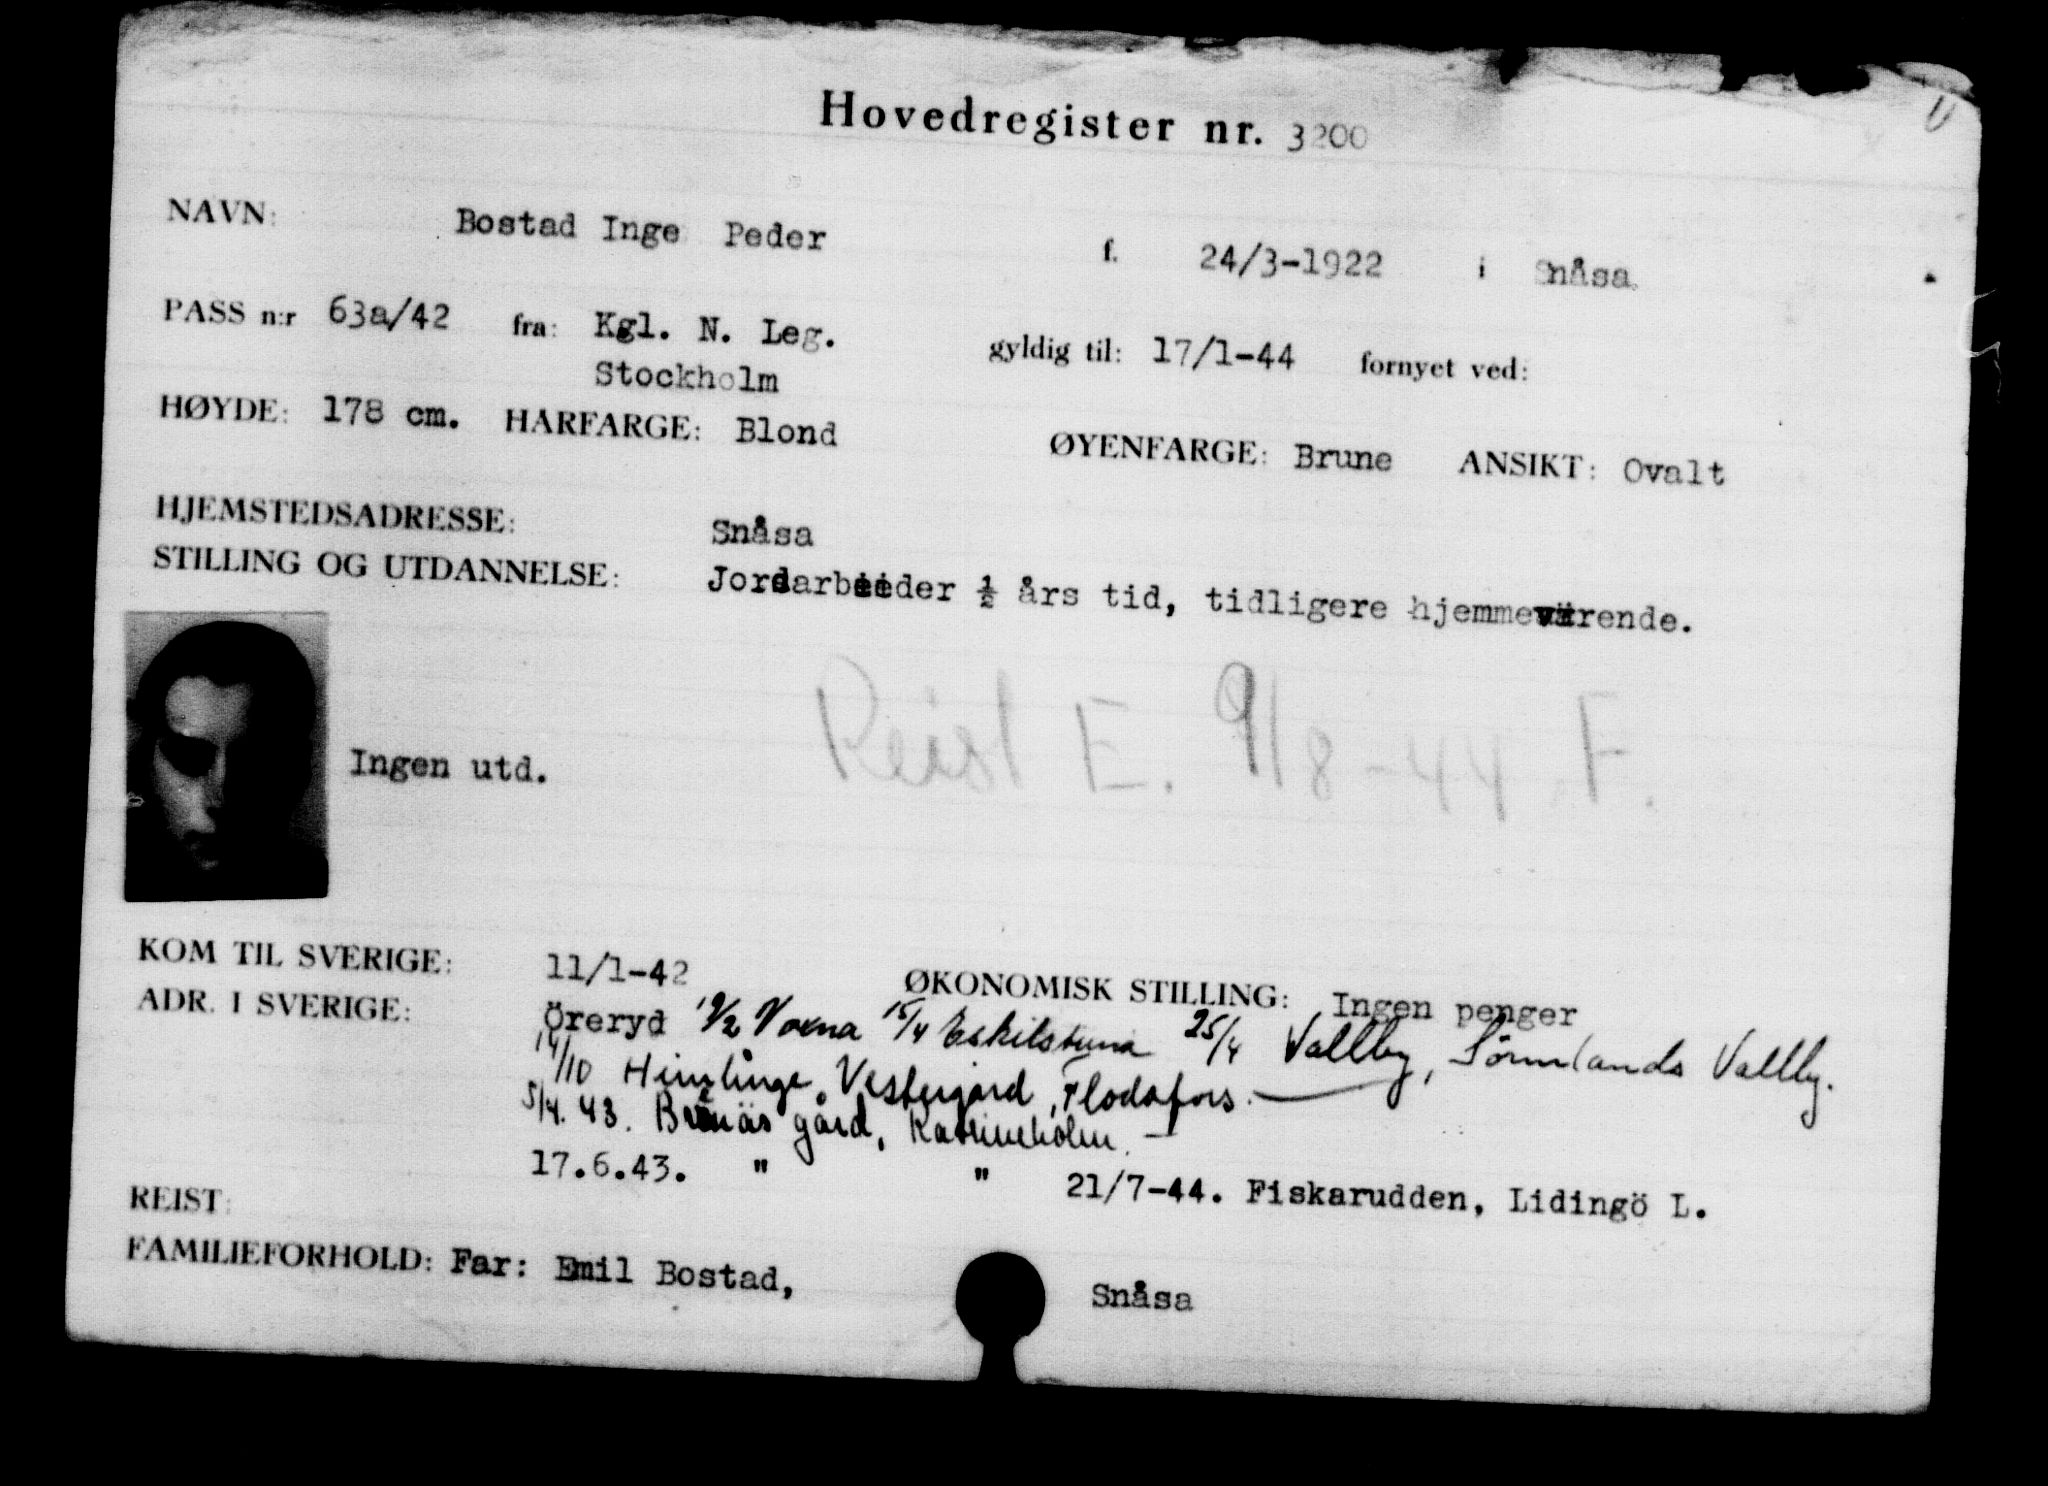 Hovedregister nr. 3200
NAVN: Bostad Inge Peder f. 24/3-1922 i Snåsa.
PASS n:r 63a/42 fra: Kgl. N. Leg. gyldig til: 17/1-44 fornyet ved:
Stockholm
HØYDE: 178 cm. HARFARGE: Blond ØYENFARGE: Brune ANSIKT: Ovalt
HJEMSTEDSADRESSE: Snåsa
STILLING OG UTDANNELSE: Jordarbeider ½ års tid, tidligere hjemmeværende.
Reist E. 9/8-44 F.
Ingen utd.
KOM TIL SVERIGE: 11/1-42 ØKONOMISK STILLING: Ingen penger
ADR. I SVERIGE: Öreryd Voxna 15/4 Eskilstuna 25/4 Vallby, Sörmlands Vallby.
14/10 Himlinge, Vestergård, Flodafors.
5/4. 43. gård, Katrineholm. —
17.6.43. " " 21/7-44. Fiskarudden, Lidingö L.
REIST:
FAMILIEFORHOLD: Far: Emil Bostad, Snåsa